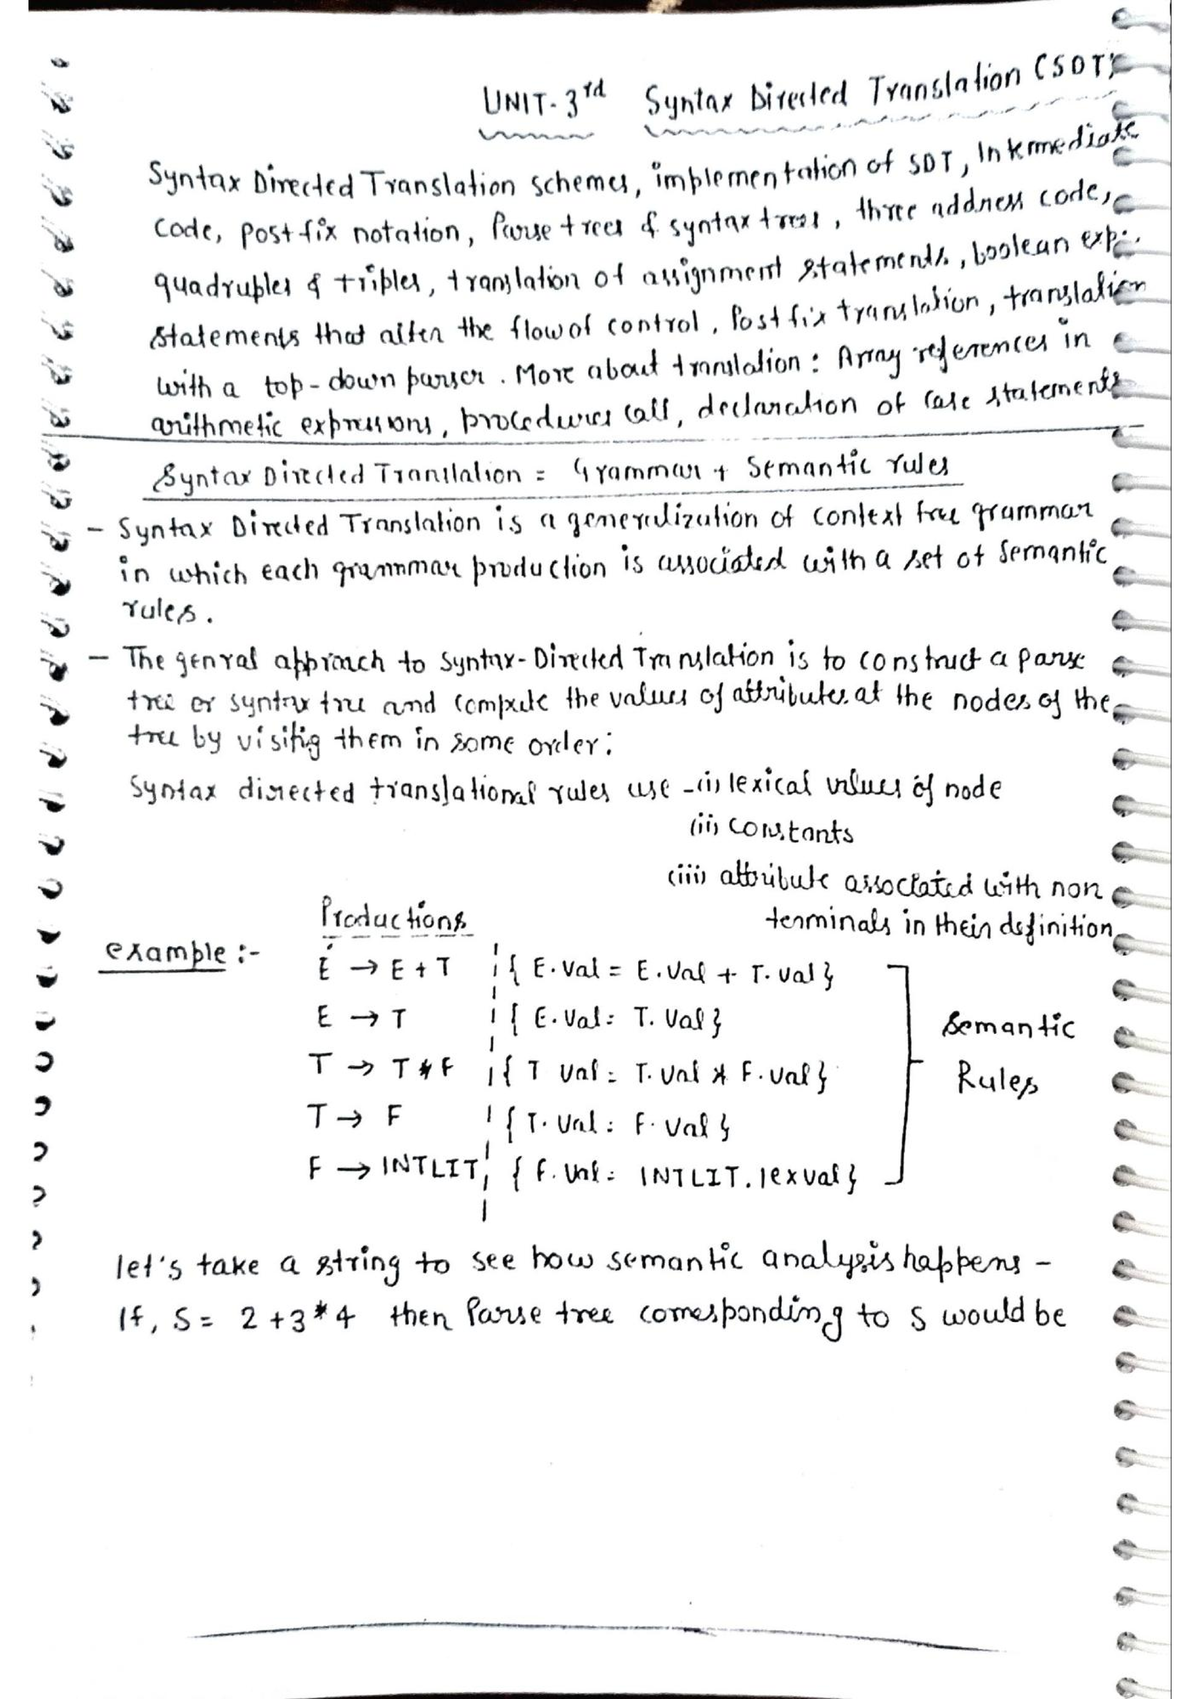 UNIT-3rd Syntax Directed Translation (SDT)
Syntax Directed Translation schemes, implementation of SDT, Intermediate
Code, postfix notation, Parse trees & syntax trees, three address code,
quadruples & triples, translation of assignment statements, boolean exp.
statements that alter the flow of control, Postfix translation, translation
with a top-down parser. More about translation: Array references in
arithmetic expressions, procedures call, declaration of case statements
Syntax Directed Translation = Grammar + Semantic rules
- Syntax Directed Translation is a generalization of context free grammar
in which each grammar production is associated with a set of semantic
rules.
- The genral approach to Syntax-Directed Translation is to construct a parse
tree or syntax tree and compute the values of attributes at the nodes of the
tree by visitig them in some order:
Syntax directed translational rules use -(i) lexical values of node
(ii) constants
(iii) attribute associated with non
terminals in their definition
Productions
example :-
E → E + T { E.val = E.val + T.val }
E → T { E.val = T.val }
T → T * F { T val = T.val * F.val }
T → F { T.val = F.val }
F → INTLIT { F.val = INTLIT.lexval }
Semantic
Rules
let's take a string to see how semantic analysis happens -
If, S = 2+3*4 then Parse tree corresponding to S would be